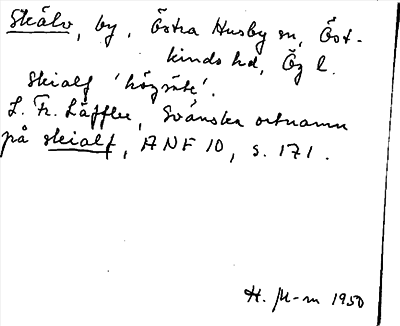 Skälv, by, Östra Husby sn, Öst-
kinds hd, Ög l.
skialf 'högsäte'.
L. Fr. Läffler, Svänska ortnamn
på skialf, ANF 10, s. 171.
H. M-m 1950